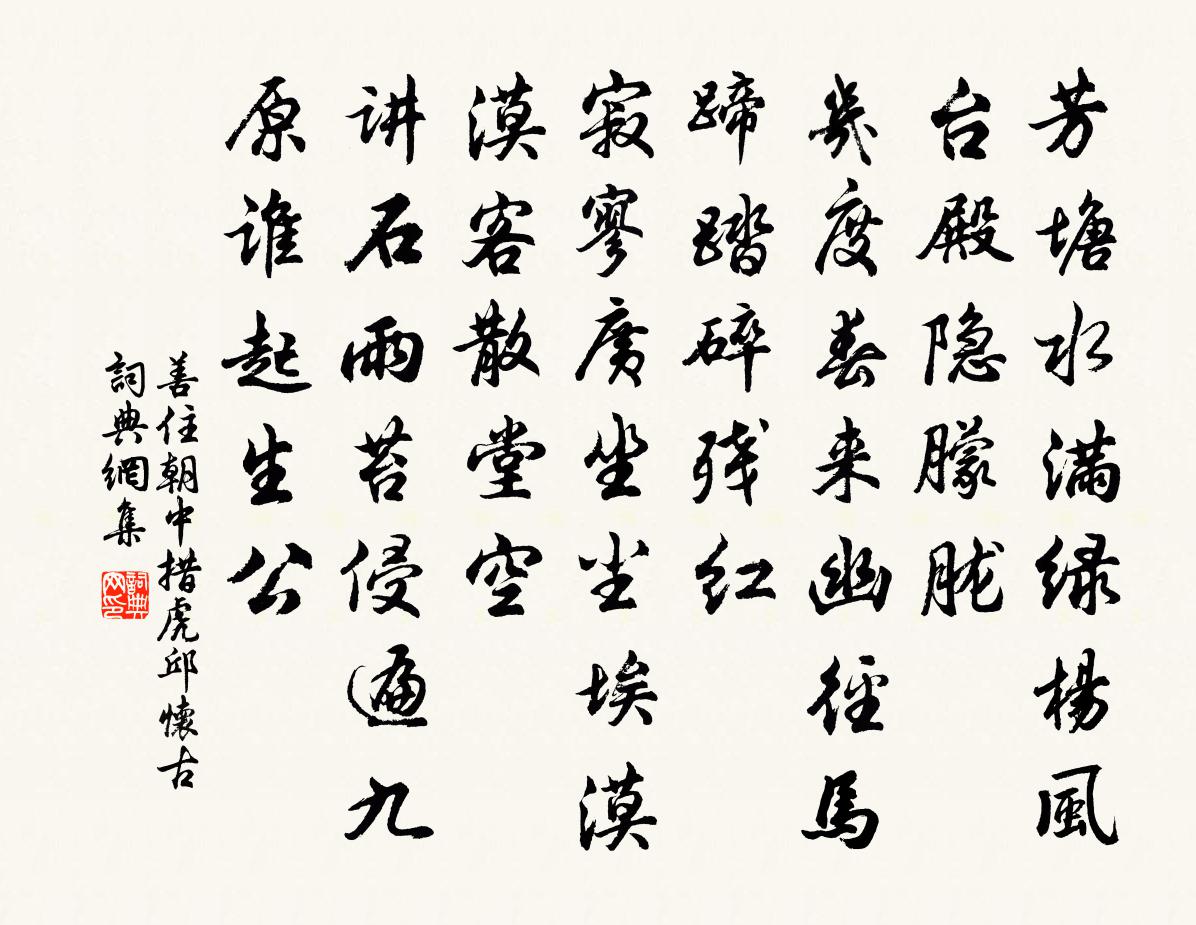 芳塘水满绿楊風
台殿隐朦胧
幾度春来幽徑馬
蹄踏碎残红
寂寥廣坐尘埃漠
漠客散堂空
讲石雨苔侵遍九
原谁起生公
善住朝中措虎邱懷古
詞典網集
詞典网印